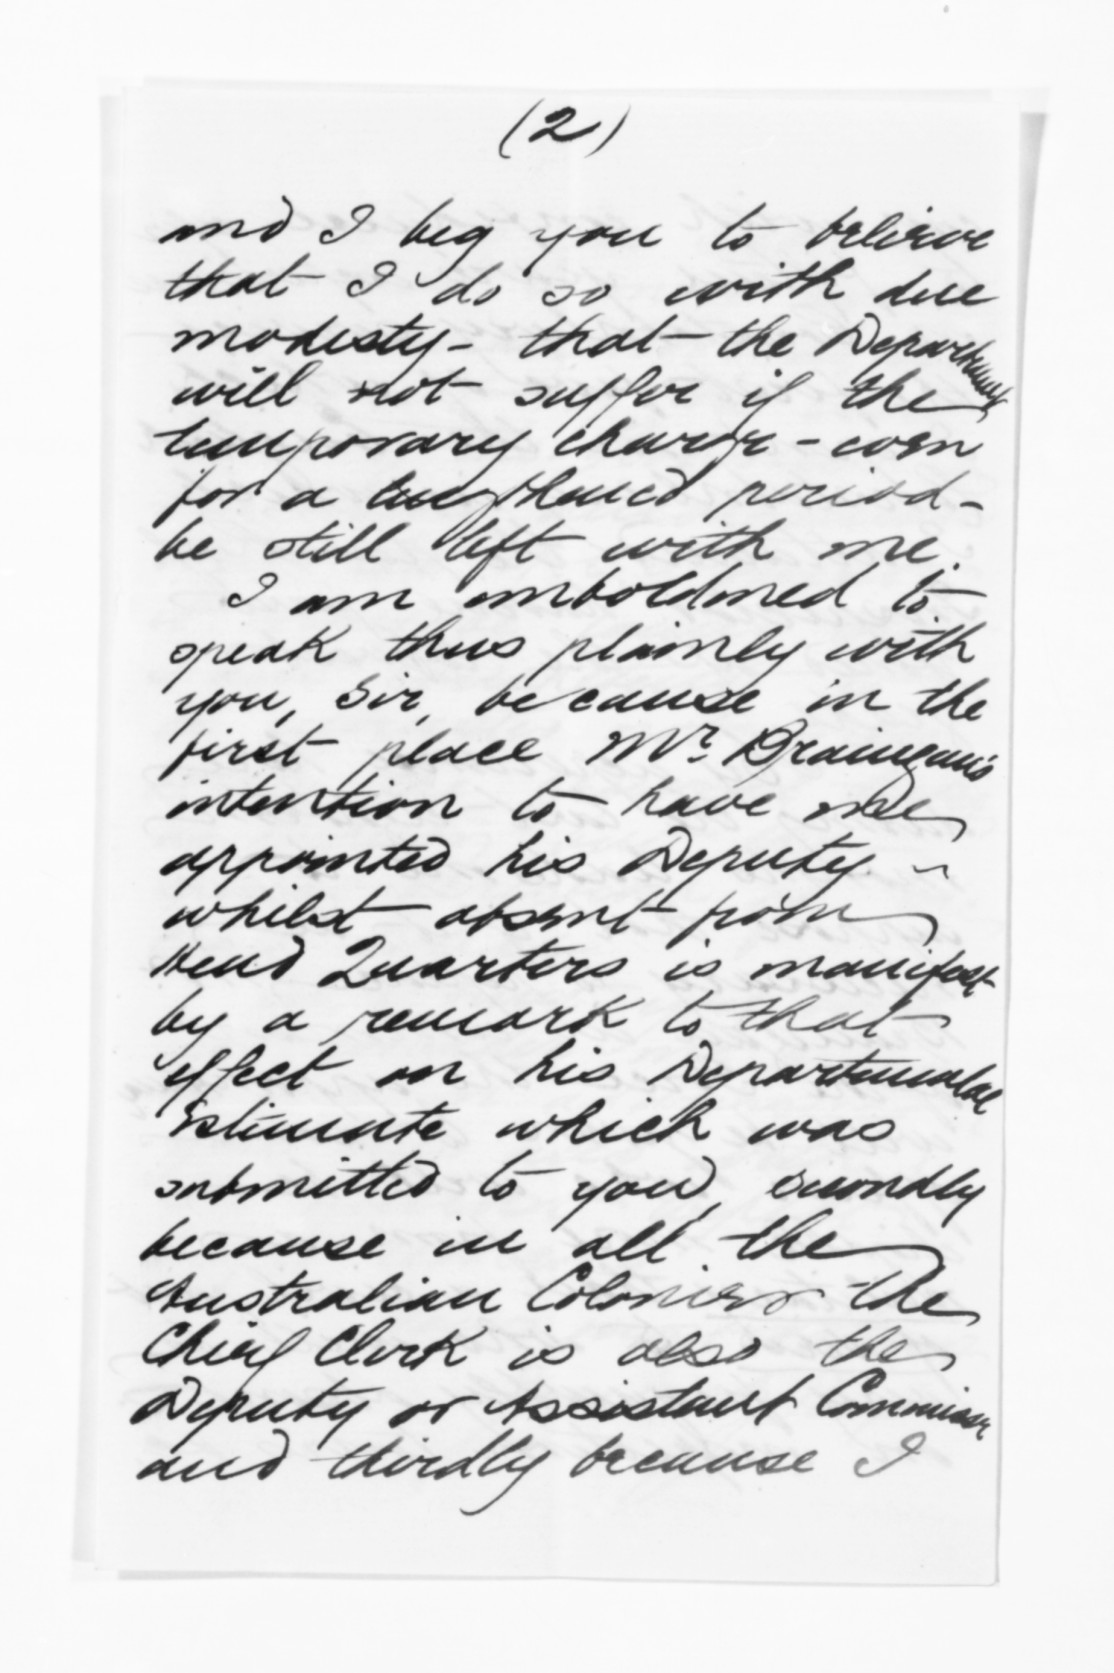 (2)
and I beg you to believe
that I do so with due
modesty - that the Department
will not suffer if the
temporary charge - even
for a lengthened period -
be still left with me.
I am emboldened to
speak thus plainly with
you, Sir, because in the
first place Mr. Branigan's
intention to have me
appointed his Deputy -
whilst absent from
Head Quarters is manifest
by a remark to that
effect on his Departmental
Estimate which was
submitted to you, secondly
because in all the
Australian Colonies the
Chief Clerk is also the
Deputy or Assistant Commissr
and thirdly because I